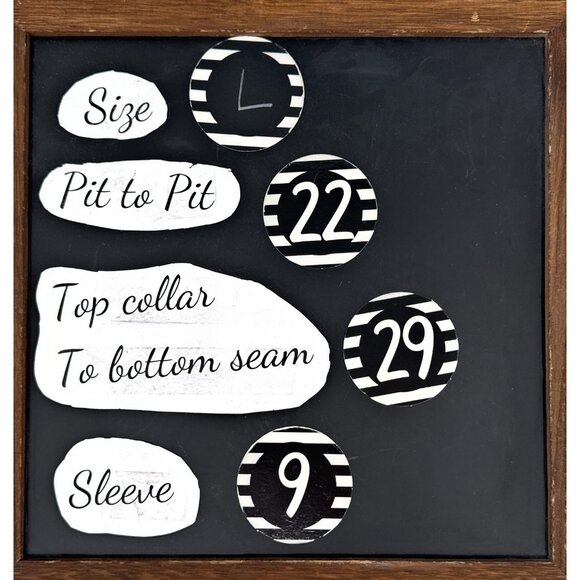 Size L
Pit to Pit 22
Top collar
To bottom seam 29
Sleeve 9